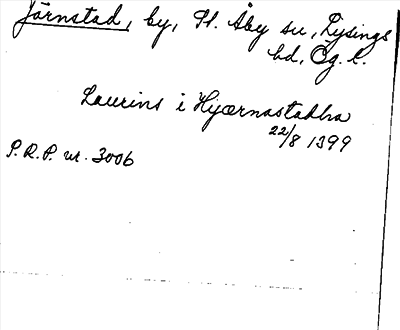 Järnstad, by, St. Åby sn, Lysings
hd, Ög. l.
Laurins i Hyærnastadha
22/8 1399
P.R.P. nr. 3006